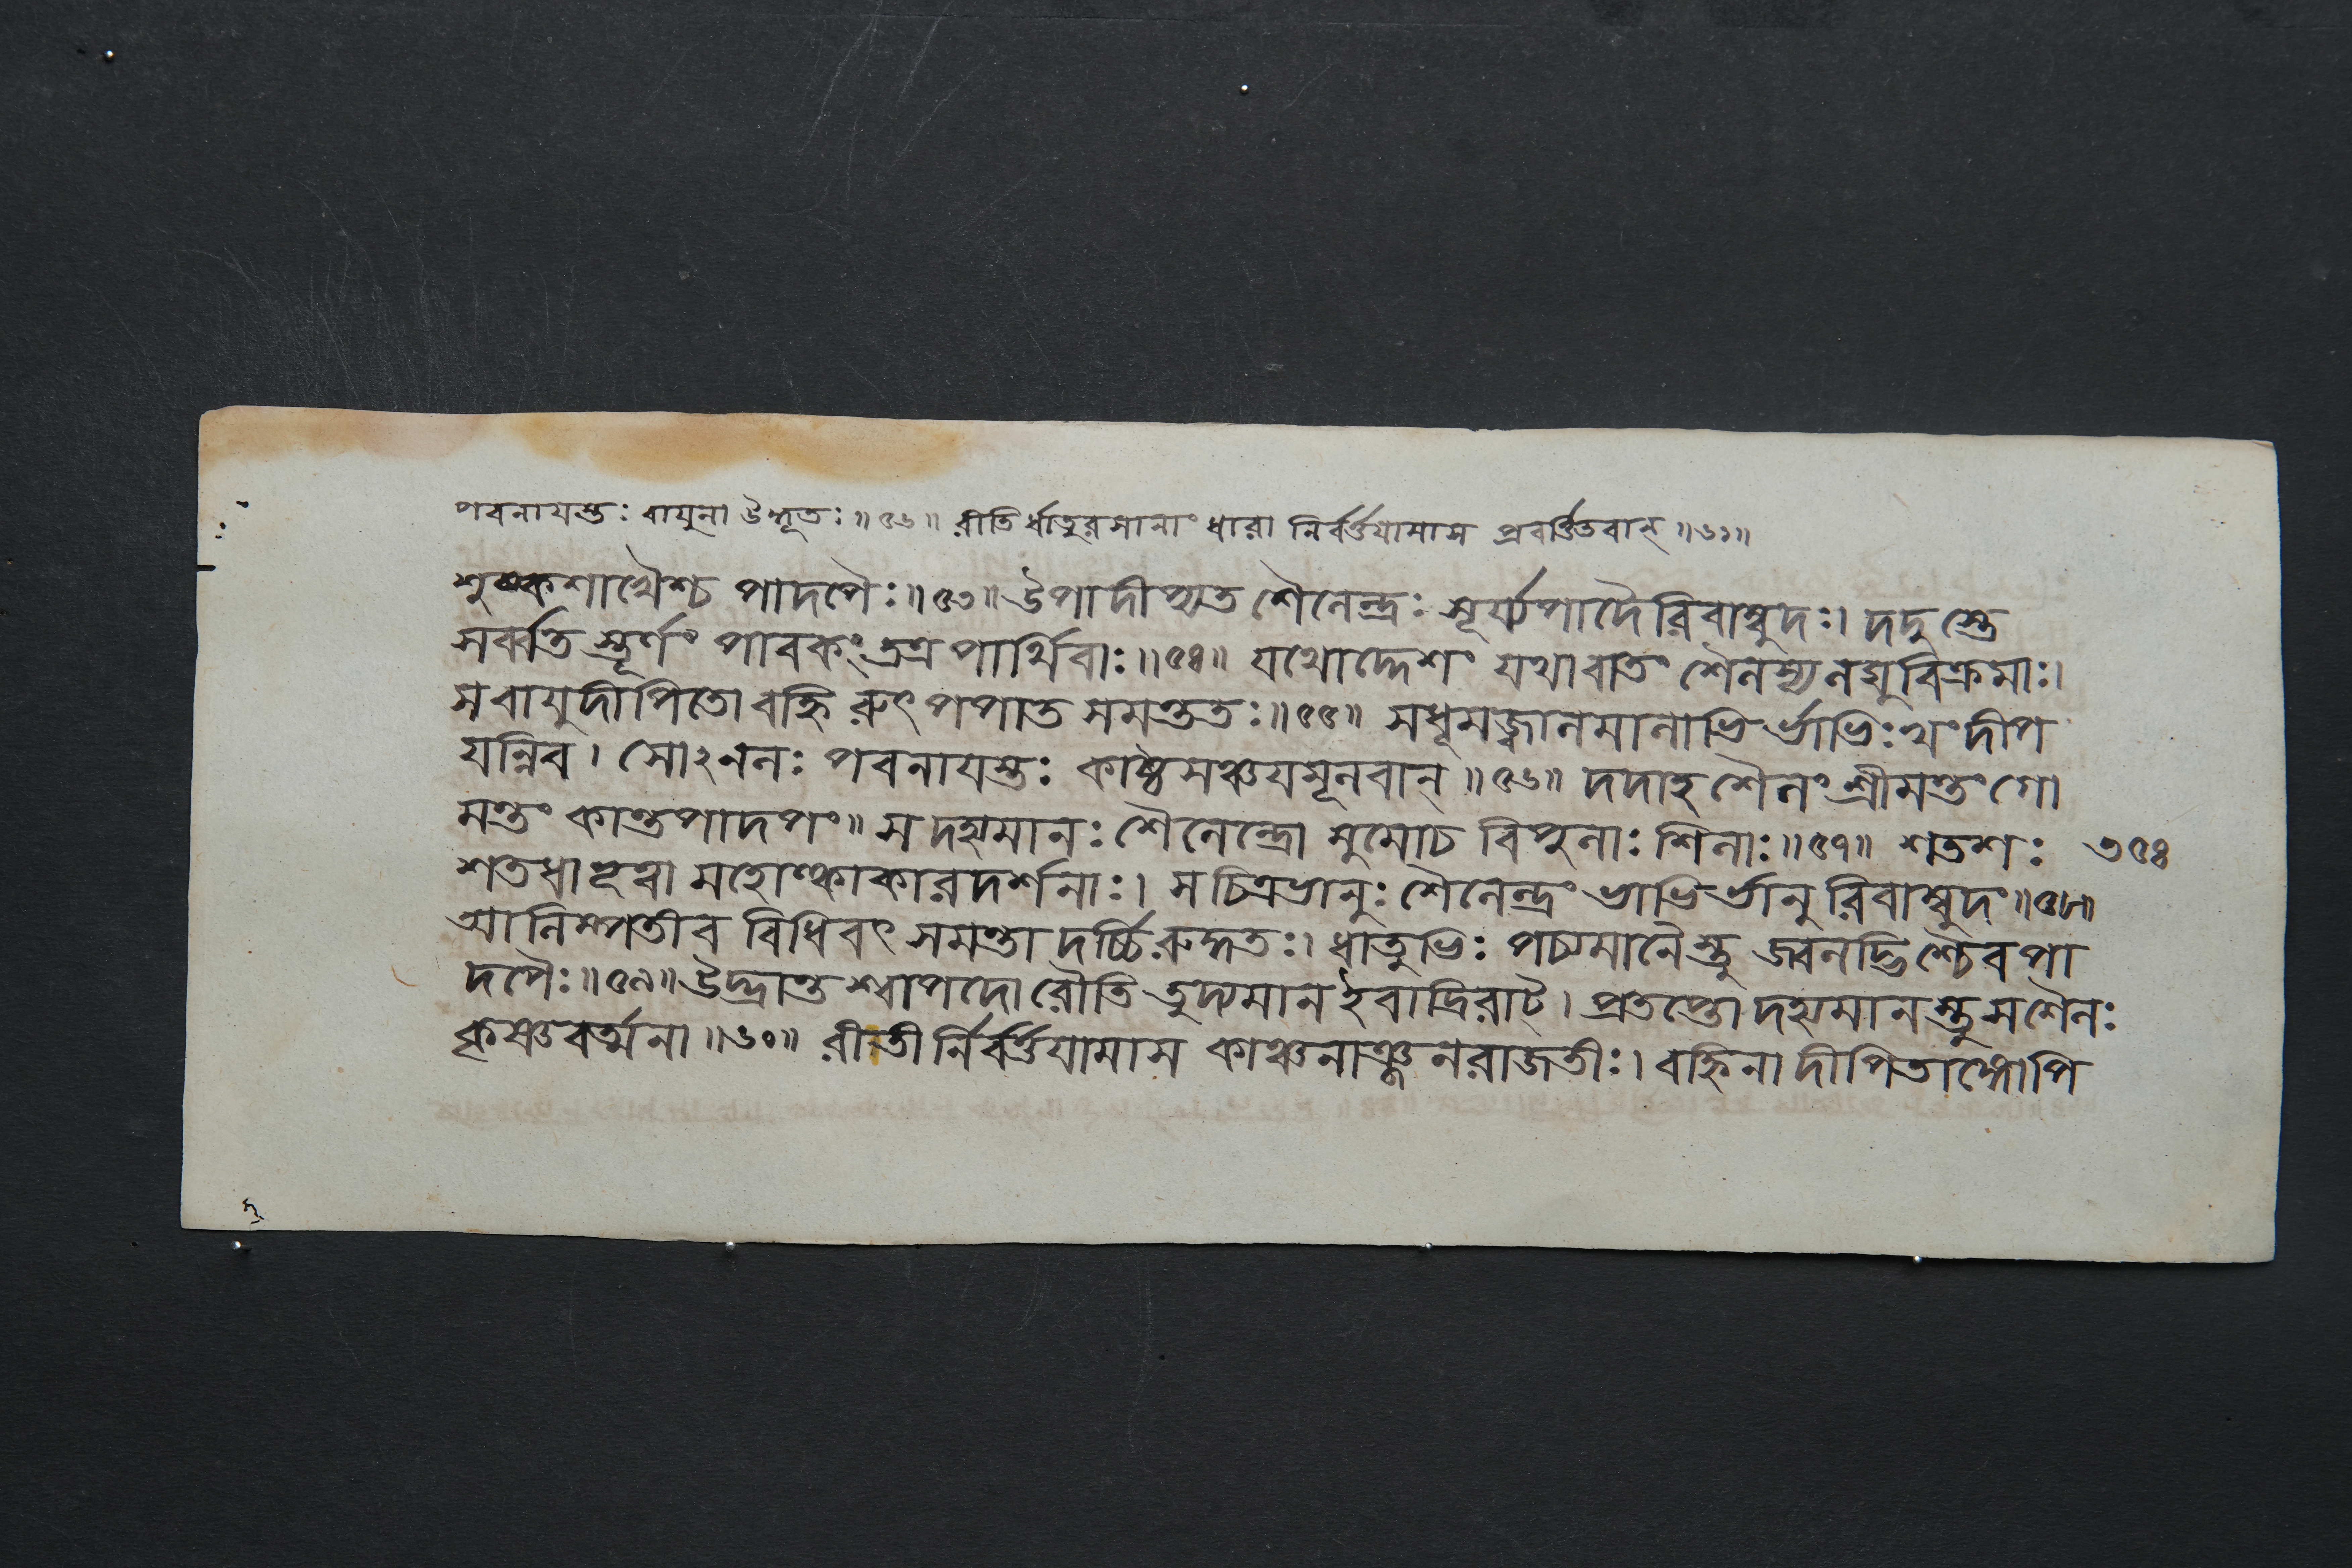 পবনাযস্তঃ বাযুনা উদ্ধূতঃ॥৫৬॥ রীতি র্ধাতুরসানাং ধারা নির্বর্ত্তযামাস প্রবর্ত্তিতবান্॥৬১॥
শুষ্কশাখৈশ্চ পাদপৈঃ॥৫৩॥ উপাদীপ্যত শৈলেন্দ্রঃ সূর্য্যপাদৈরিবাম্বুদঃ। দদু স্তে
সর্ব্বতি স্তূর্ণং পাবকং তত্র পার্থিবাঃ॥৫৪॥ যথোদ্দেশং যথাবাতং শৈলস্য লঘুবিক্রমাঃ।
স বাযুদীপিতো বহ্নি রুৎপপাত সমন্ততঃ॥৫৫॥ সধূমজ্বালমালাভি র্ভাভিঃ খং দীপ
যন্নিব। সোঽনলঃ পবনাযস্তঃ কাষ্ঠসঞ্চযমূলবান্॥৫৬॥ দদাহ শৈলং শ্রীমন্তং গো
মন্তং কান্তপাদপং॥ স দহ্যমানঃ শৈলেন্দ্রো মুমোচ বিপুলাঃ শিলাঃ॥৫৭॥ শতশঃ ৩৫৪
শতধা ভূত্বা মহোল্কাকারদর্শনাঃ। স চিত্রভানুঃ শৈলেন্দ্রং ভাভি র্ভানু রিবাম্বুদং॥৫৮॥
আলিম্পতীব বিধিবৎ সমন্তা দর্চ্চি রুদ্ধতঃ। ধাতুভিঃ পচ্যমানৈস্তু জ্বলদ্ভিশ্চৈব পা
দপৈঃ॥৫৯॥ উদ্ভ্রান্তশ্বাপদো রৌতি তুদ্যমান ইবাদ্রিরাট্। প্রতপ্তো দহ্যমানস্তু স শৈলঃ
কৃষ্ণবর্ত্মনা॥৬০॥ রীতী র্নির্বর্ত্তযামাস কাঞ্চনাঞ্জনরাজতীঃ। বহ্নিনা দীপিতাঙ্গোপি